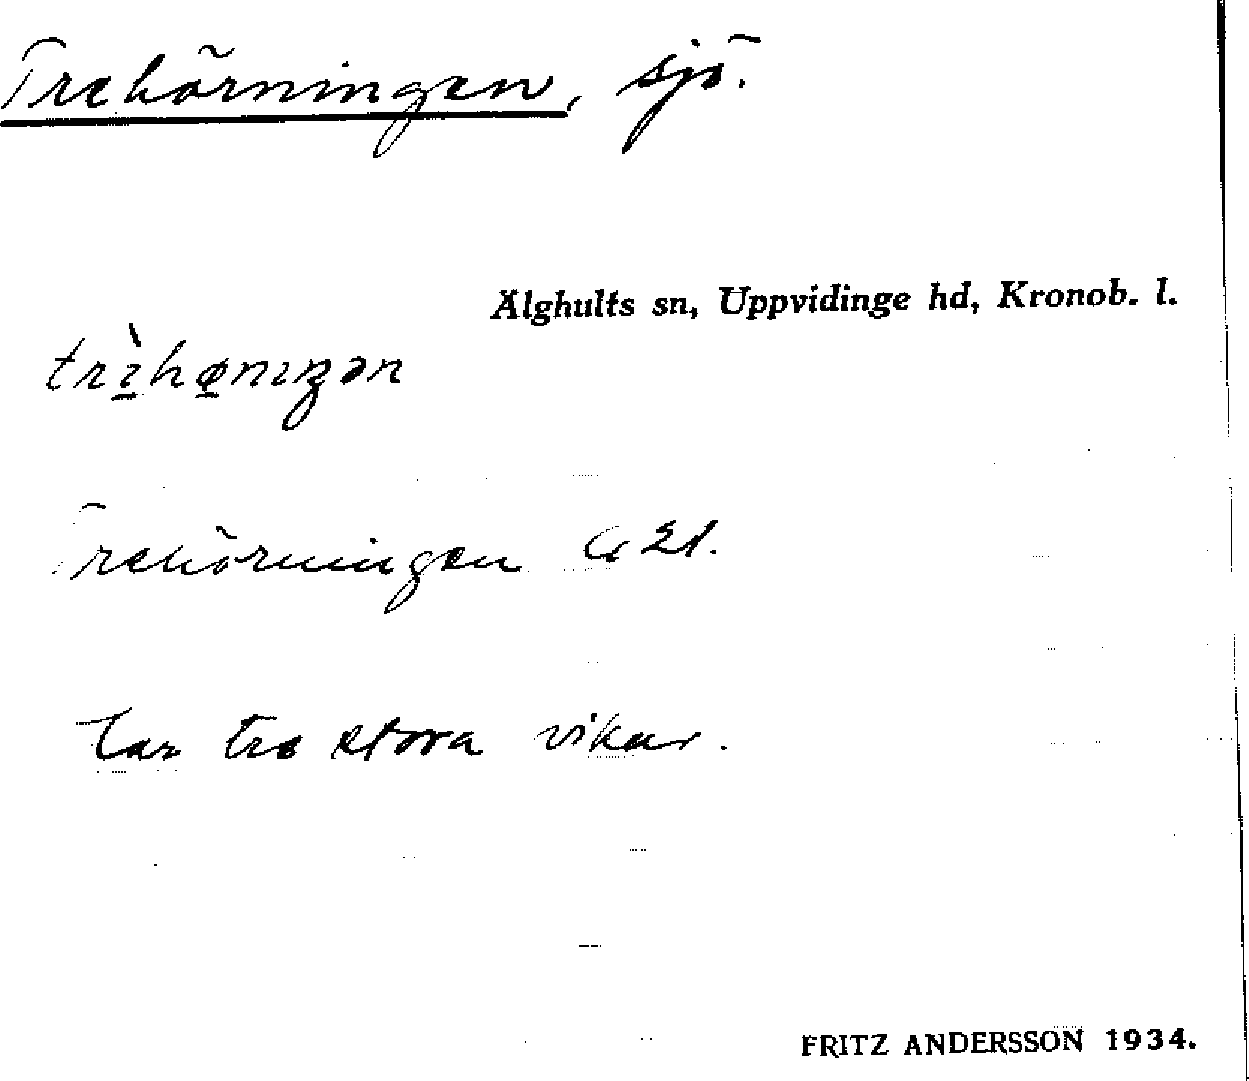 Trehörningen, sjö.
Älghults sn, Uppvidinge hd, Kronob. l.
trìhøniŋən
Trehörningen
har tre stora vikar.
FRITZ ANDERSSON 1934.